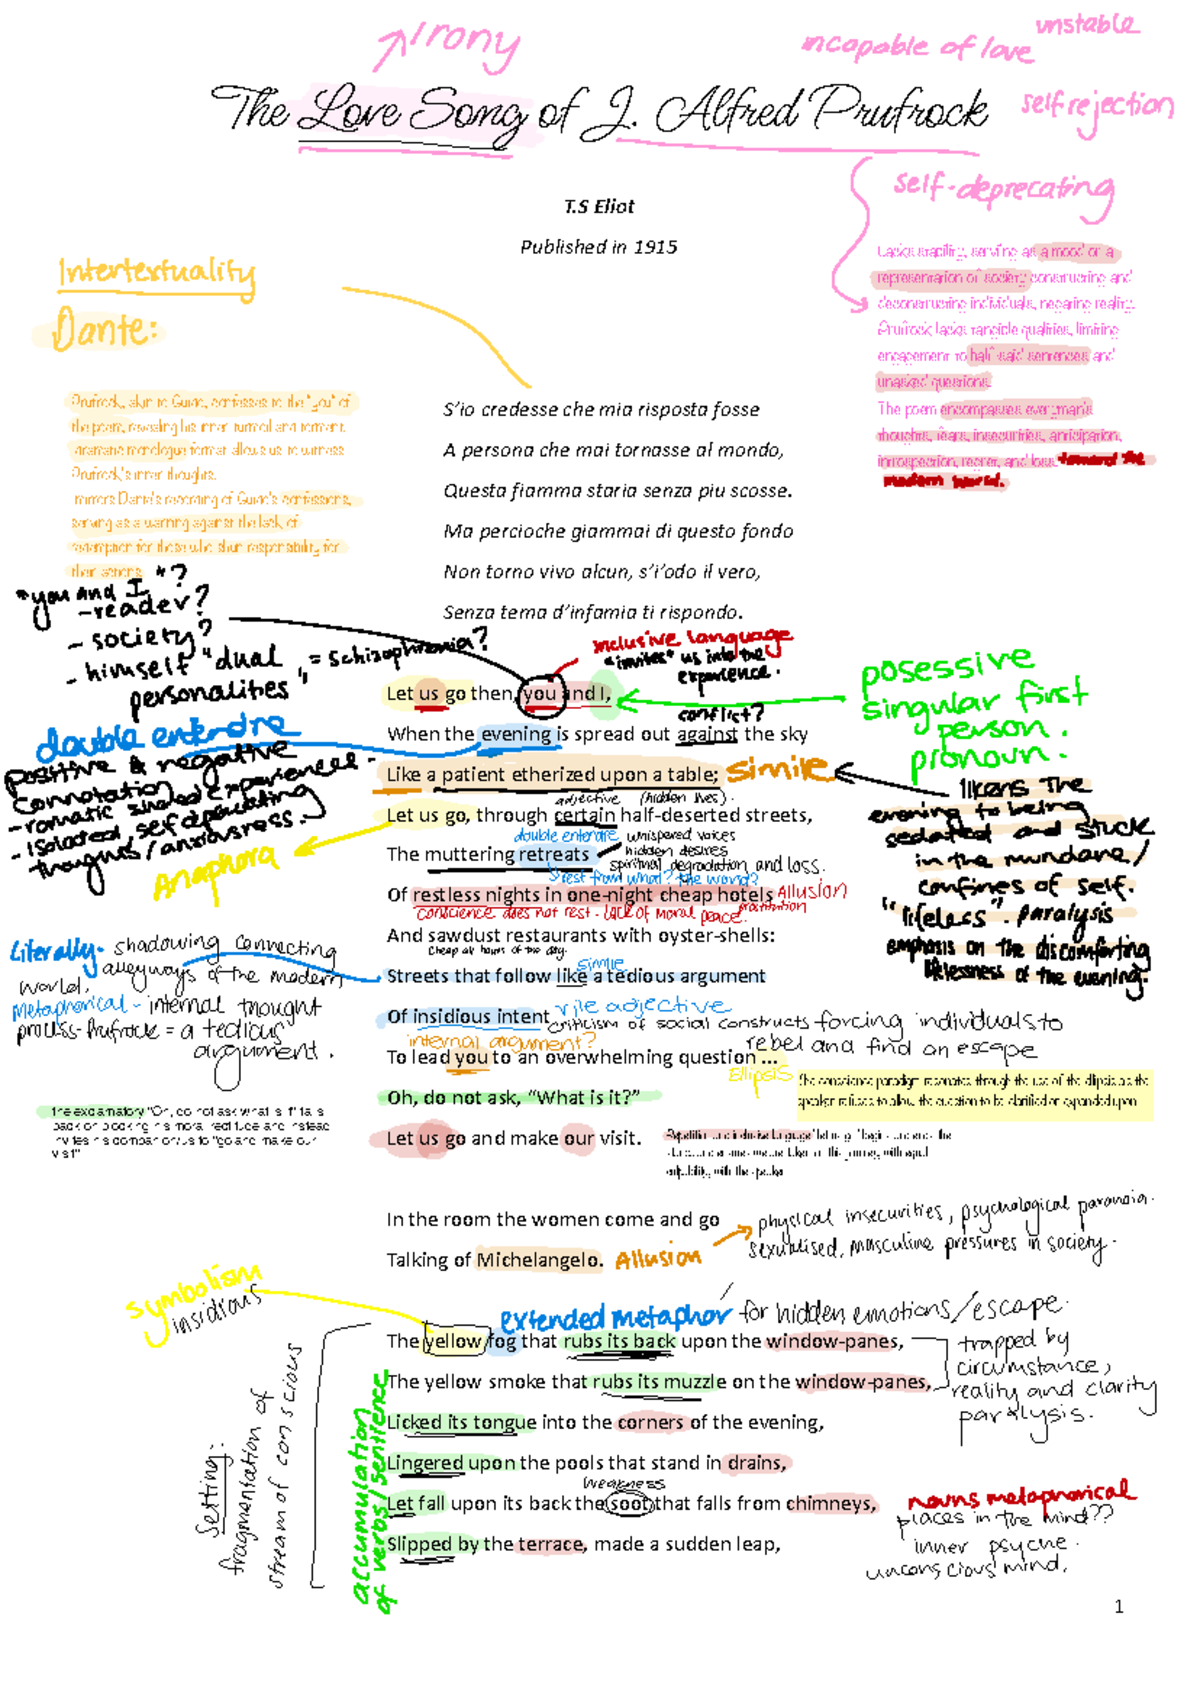 Irony
unstable
incapable of love
The Love Song of J. Alfred Prufrock
self rejection
self-deprecating
T.S Eliot
Published in 1915
Intertextuality
Dante:
Lacks stability, serving as a mood or a
representation of society constructing and
deconstructing individuals, negating reality.
Prufrock lacks tangible qualities, limiting
engagement to half said sentences and
unasked questions.
The poem encompasses everyman's
thoughts, fears, insecurities, anticipation,
introspection, regret, and loss toward the
modern world.
Prufrock, akin to Guido, confesses to the "you" of
the poem, revealing his inner turmoil and torment.
dramatic monologue format allows us to witness
Prufrock's inner thoughts.
mirrors Dante's recording of Guido's confessions,
serving as a warning against the lack of
redemption for those who shun responsibility for
their actions.
S'io credesse che mia risposta fosse
A persona che mai tornasse al mondo,
Questa fiamma staria senza piu scosse.
Ma percioche giammai di questo fondo
Non torno vivo alcun, s'i'odo il vero,
Senza tema d'infamia ti rispondo.
"you and I"?
- reader?
- society?
- himself "dual
personalities"
= schizophrenia?
inclusive language
"invites" us into the
experience.
Let us go then, you and I,
posessive
singular first
person.
pronoun.
conflict?
When the evening is spread out against the sky
double entendre
positive & negative
connotation
- romatic shared experiences.
- isolated, self depreciating
thoughts/anxiousness.
Like a patient etherized upon a table;
simile
likens the
evening to being
sedated and stuck
in the mundane/
confines of self.
"lifeless". paralysis
emphasis on the discomforting
lifelessness of the evening.
adjective (hidden lives).
Let us go, through certain half-deserted streets,
Anaphora
double entendre whispered voices
hidden desires
spiritual degradation and loss.
The muttering retreats
Rest from what? The world?
Of restless nights in one-night cheap hotels
Allusion
prostitution
conscience does not rest - lack of moral peace.
And sawdust restaurants with oyster-shells:
Cheap at hours of the day.
Literally- shadowing connecting
alleyways of the modern
world.
Metaphorical - internal thought
process- Prufrock = a tedious
argument.
simile
Streets that follow like a tedious argument
Of insidious intent
vile adjective
criticism of social constructs forcing individuals to
rebel and find an escape
internal argument?
To lead you to an overwhelming question ...
Ellipsis
The conscience paradigm resonates through the use of the ellipsis as the
speaker refuses to allow the question to be clarified or expanded upon
Oh, do not ask, "What is it?"
the exclamatory "Oh, do not ask what is it" falls
back on blocking his moral rectitude and instead
invites his companion/us to "go and make our
visit"
Let us go and make our visit.
culpability with the speaker
In the room the women come and go
Talking of Michelangelo.
Allusion
physical insecurities, psychological paranoia.
sexualised, masculine pressures in society.
symbolism
insidious
extended metaphor for hidden emotions/escape.
The yellow fog that rubs its back upon the window-panes,
The yellow smoke that rubs its muzzle on the window-panes,
trapped by
circumstance,
reality and clarity
paralysis.
Licked its tongue into the corners of the evening,
Lingered upon the pools that stand in drains,
weakness
Let fall upon its back the soot that falls from chimneys,
Slipped by the terrace, made a sudden leap,
nouns metaphorical
places in the mind??
inner psyche.
unconscious mind.
Setting:
fragmentation of
stream of conscious
accumulation
of verbs/sentience
1